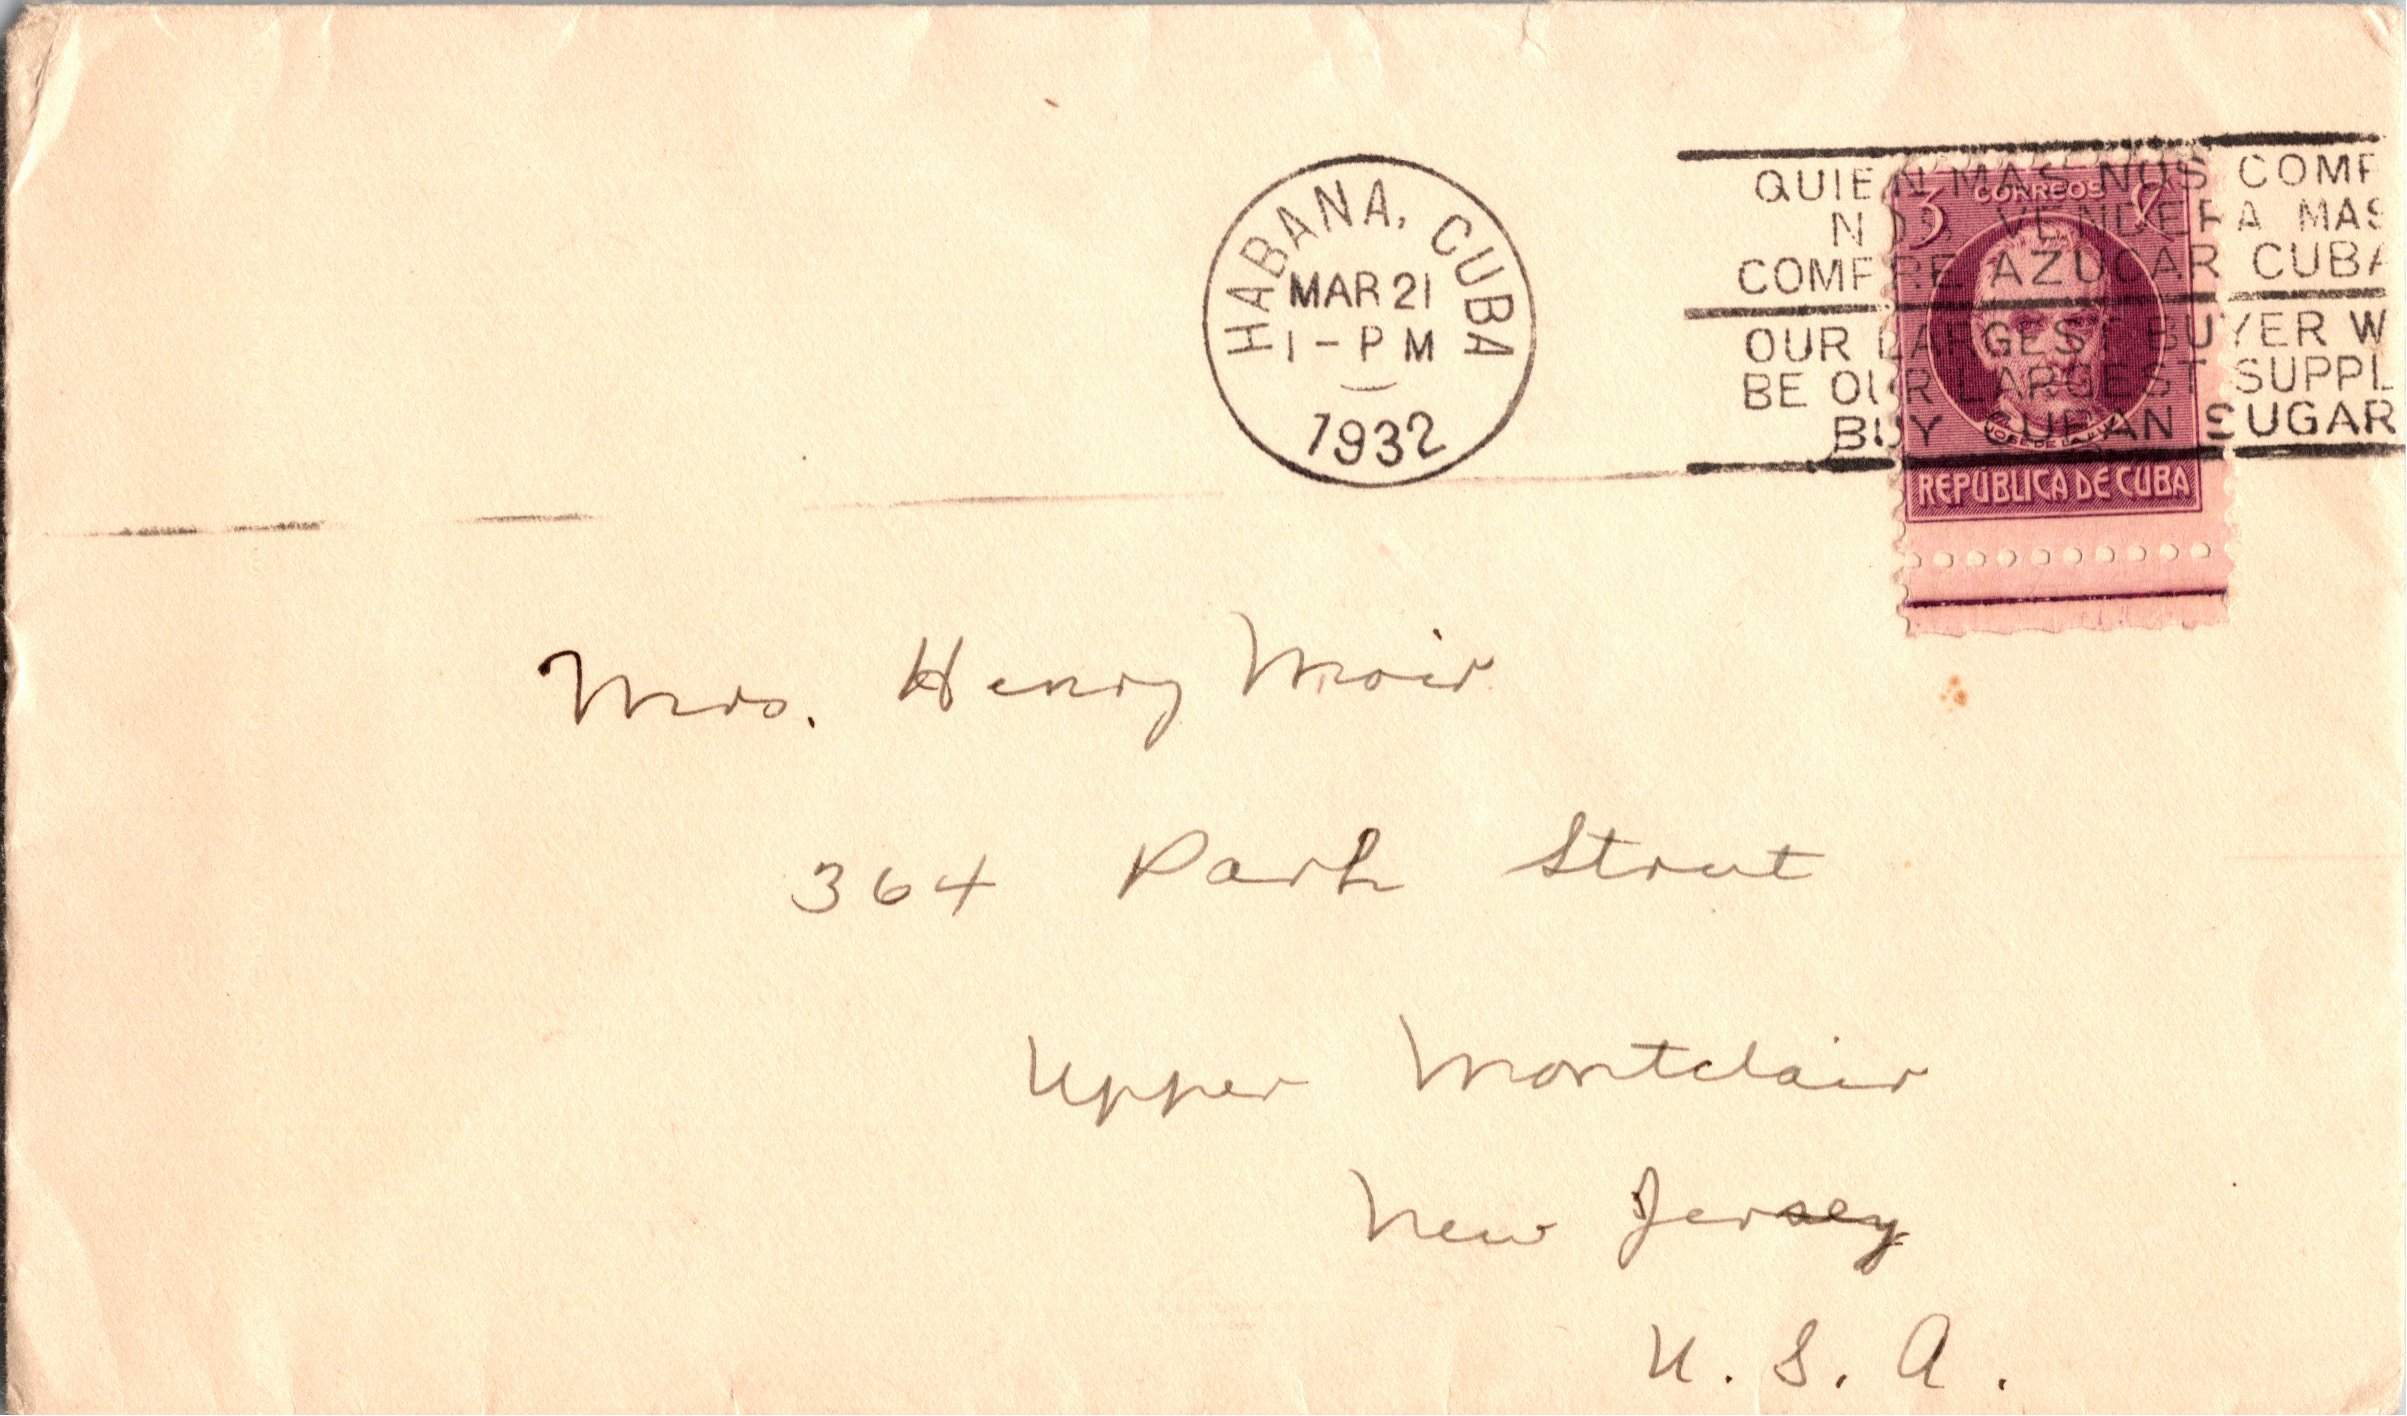 HABANA, CUBA
MAR 21
1-PM
1932
QUIEN MAS NOS COMP
NOS VENDERA MAS
COMPRE AZUCAR CUBA
OUR LARGEST BUYER W
BE OUR LARGEST SUPPL
BUY CUBAN SUGAR
3 CORREOS
JOSE DE LA
REPÚBLICA DE CUBA
Mrs. Henry Moir
364 Park Street
Upper Montclair
New Jersey
U. S. A.